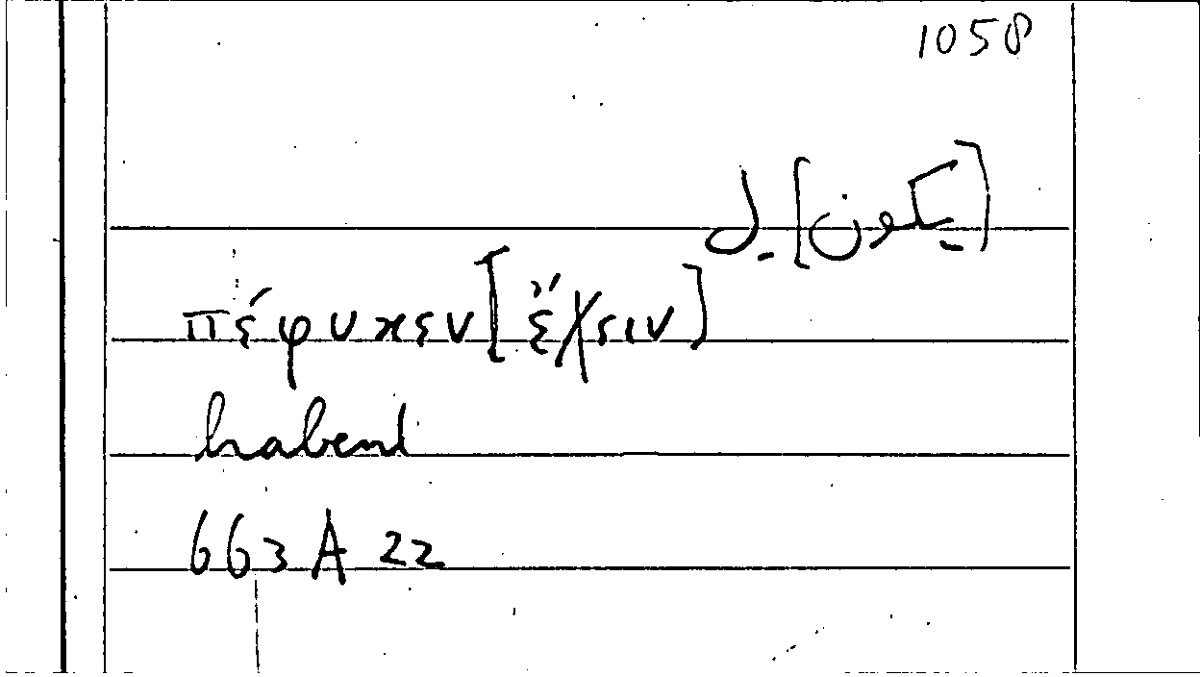 1058
[يكون]
πέφυκεν [ἔχειν]
habent
663 A 22